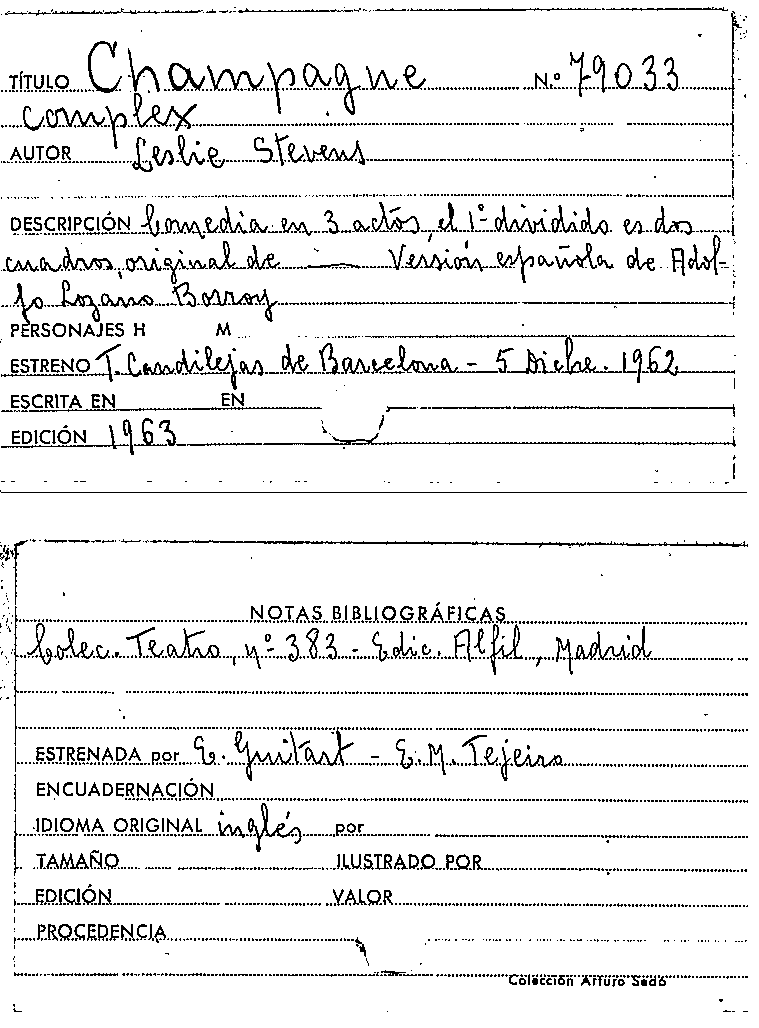 TÍTULO Champagne N.º 79033
complex
AUTOR Leslie Stevens
DESCRIPCIÓN Comedia en 3 actos, el 1º dividido es dos
cuadros, original de —— Versión española de Adol-
fo Lozano Borroy
PERSONAJES H M
ESTRENO T. Candilejas de Barcelona - 5 Dicbre. 1962
ESCRITA EN EN
EDICIÓN 1963
NOTAS BIBLIOGRÁFICAS
Colec. Teatro, nº 383 - Edic. Alfil, Madrid
ESTRENADA por E. Guitart - E. M. Tejeiro
ENCUADERNACIÓN
IDIOMA ORIGINAL inglés por
TAMAÑO ILUSTRADO POR
EDICIÓN VALOR
PROCEDENCIA
Colección Arturo Sedó